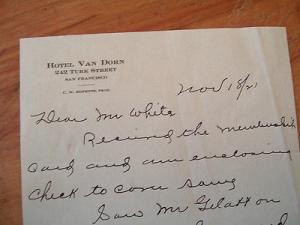 HOTEL VAN DORN
242 TURK STREET
SAN FRANCISCO
C. W. , PROP.
Nov 18/21
Dear Mr White
Recived the Membership
Card and am enclosing
Check to cover same
Saw Mr on